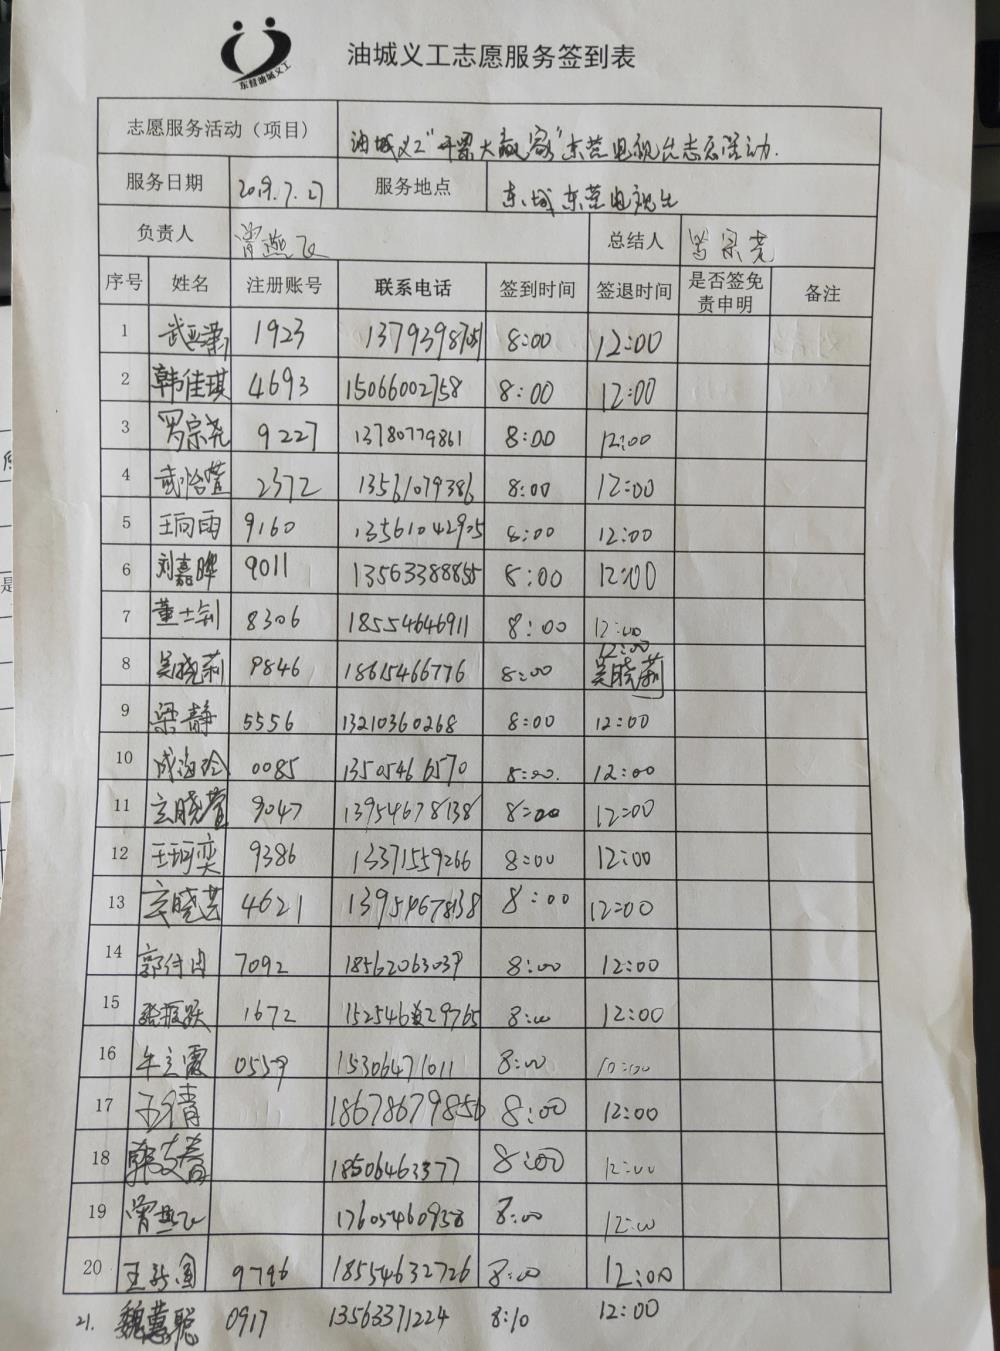 东营油城义工
油城义工志愿服务签到表
志愿服务活动（项目） 油城义工"开票大赢家"东营电视台志愿活动.
服务日期 2019.7.27 服务地点 东城东营电视台
负责人 曾燕飞 总结人 罗宗尧
序号 姓名 注册账号 联系电话 签到时间 签退时间 是否签免责申明 备注
1 1923 8:00 12:00
2 韩佳琪 4693 15066002758 8:00 12:00
3 罗宗尧 9227 13780779861 8:00 12:00
4 2372 13561079386 8:00 12:00
5 王向雨 9160 13561042905 8:00 12:00
6 刘嘉晔 9011 13563388855 8:00 12:00
7 董士钊 8306 18554646911 8:00 12:00
12:00
8 吴晓莉 9846 18615466776 8:00 吴晓莉
9 梁静 5556 13210360268 8:00 12:00
10 成海玲 0085 13505466570 8:00. 12:00
11 玄晓萱 9047 13954678138 8:00 12:00
12 王珂奕 9386 13371559266 8:00 12:00
13 玄晓芸 4621 13954678138 8:00 12:00
14 7092 18562063039 8:00 12:00
15 张振跃 1672 8:00 12:00
16 牛立霞 0559 15306471011 8:00 10:00
17 王倩 18678679856 8:00 12:00
18 18506463377 8:00 12:00
19 曾燕飞 17605460958 8:00 12:00
20 王新国 9796 18554632726 8:00 12:00
21. 魏慧聪 0917 13563371224 8:10 12:00